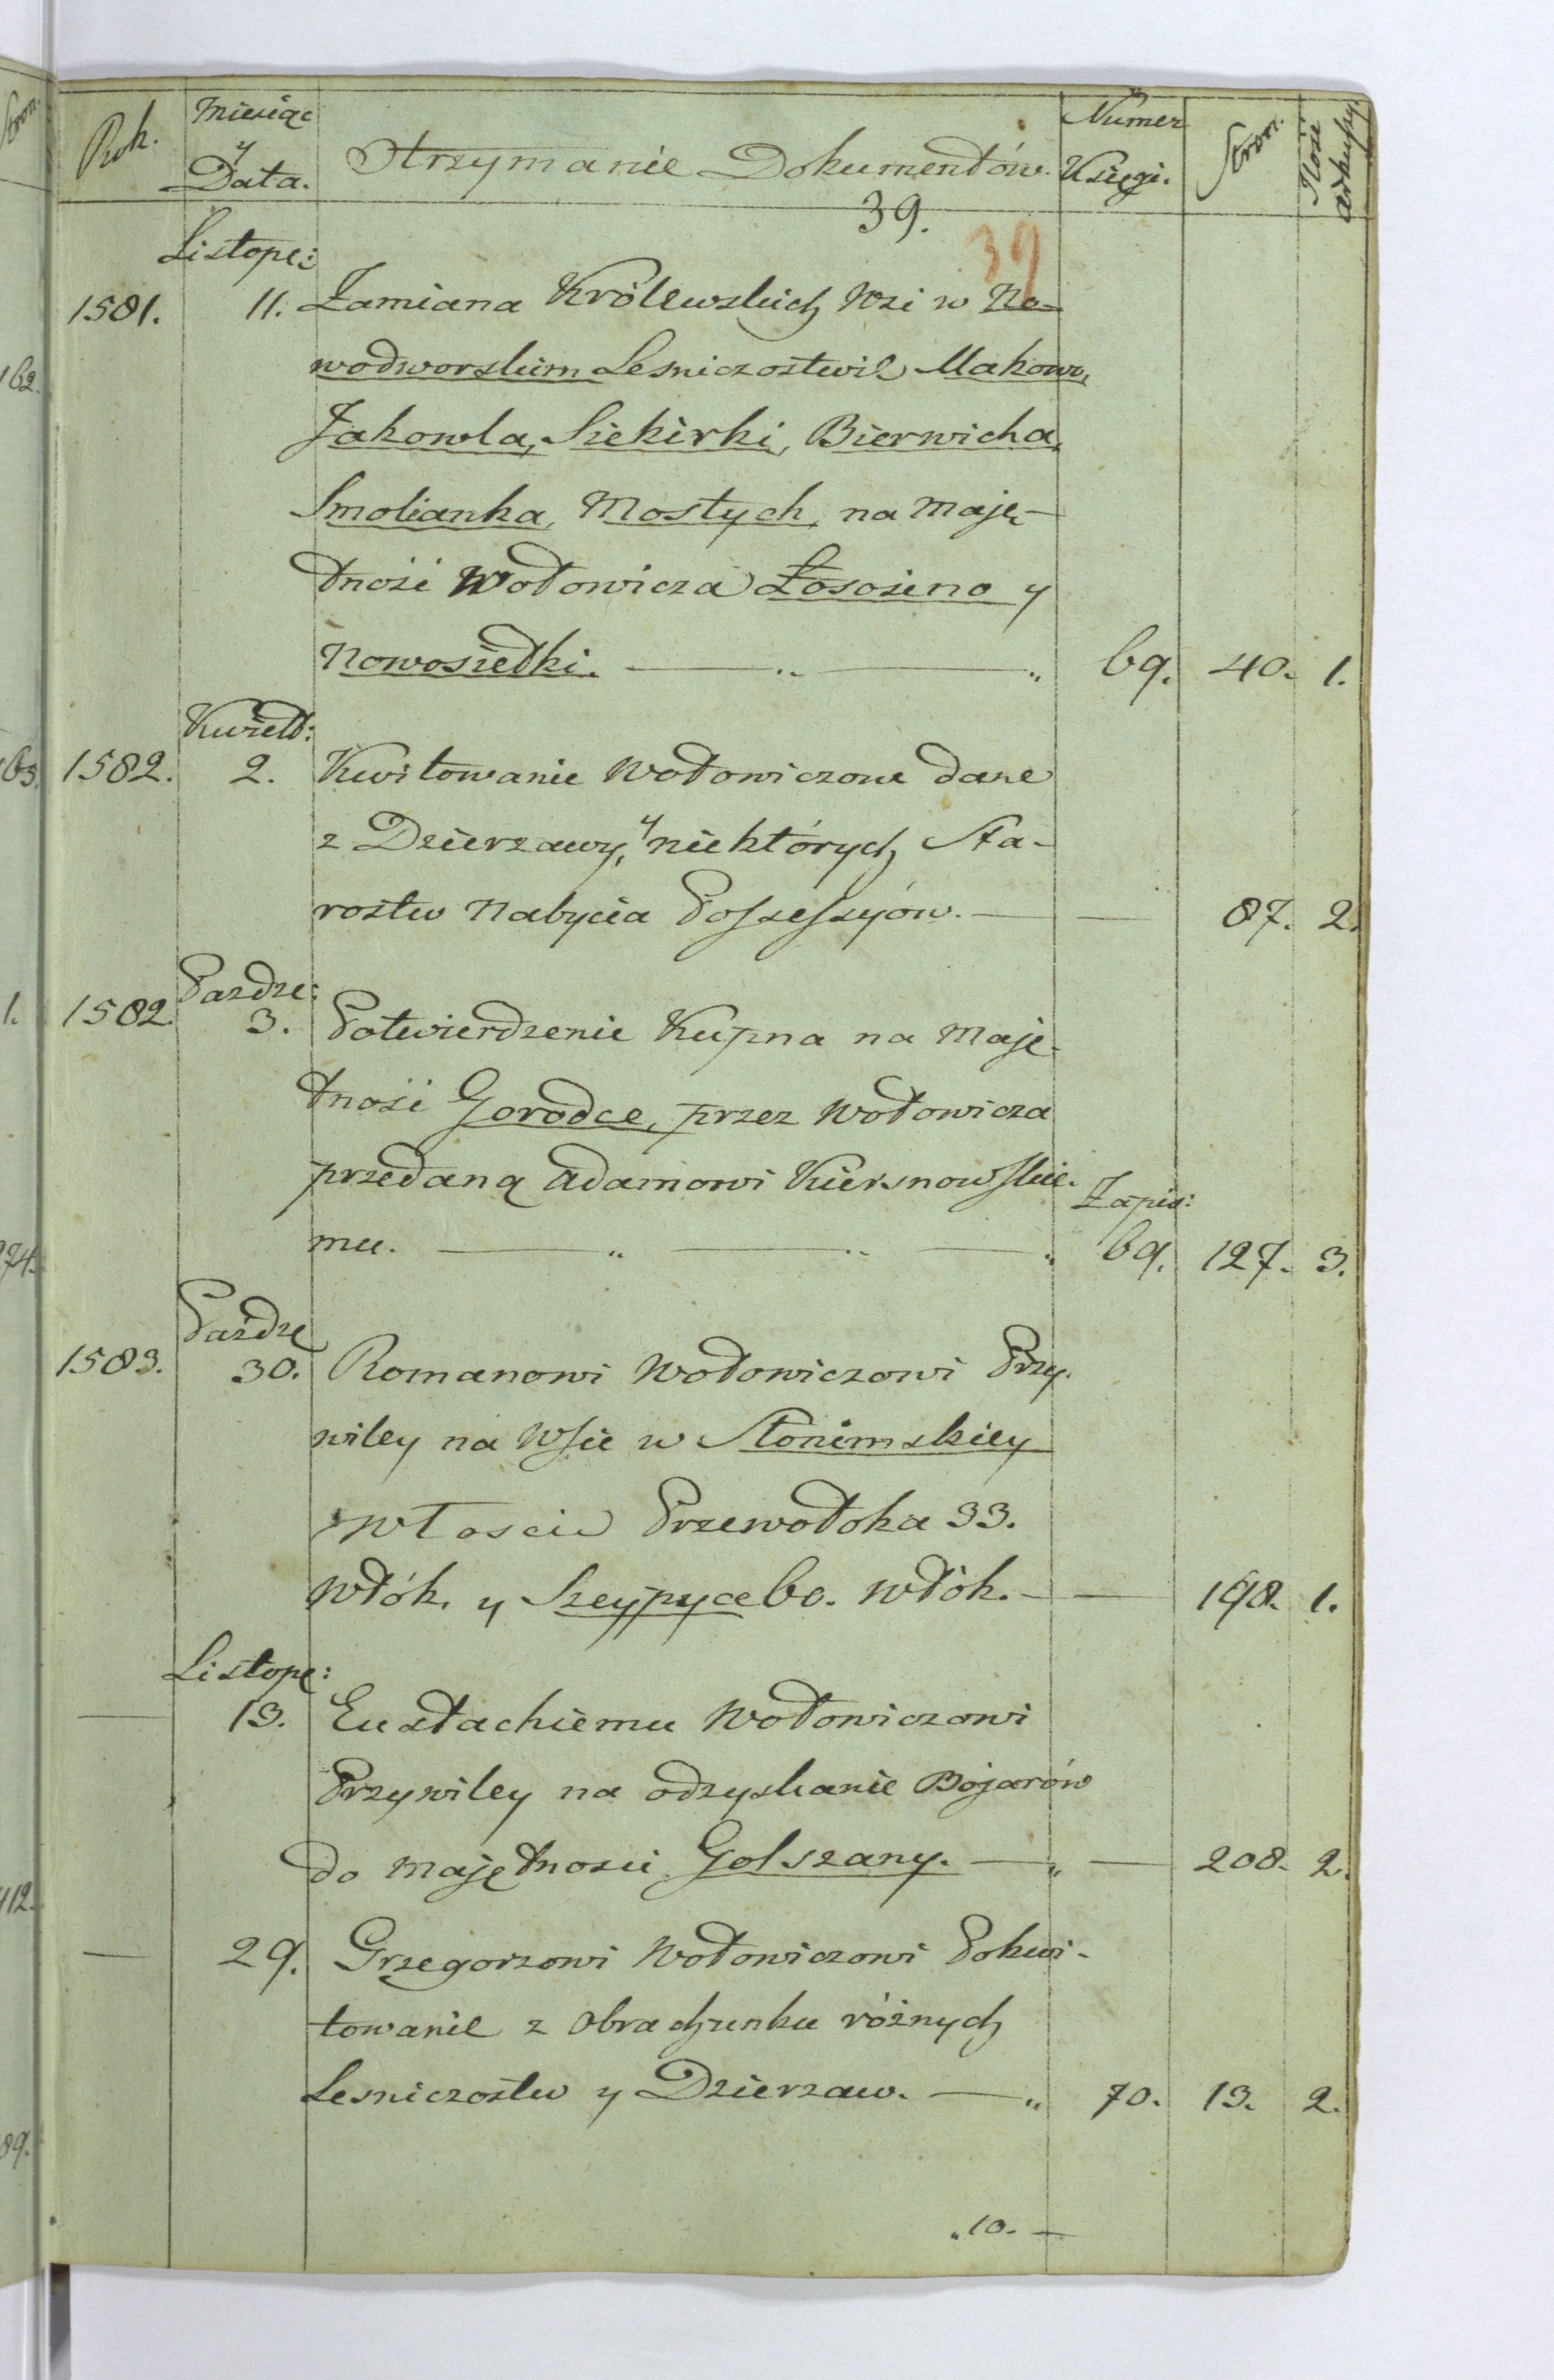 Rok.
Miesiąc
y
Data.
Otrzymanie Dokumentów.
Numer
Księgi.
Stron.
Ilość
arkuszy.
39.
39
Listope:
1581. 11. Zamiana Królewskich Wsi w No-
wodworskim Lesniczostwie Makowo,
Jakowla, Siekirki, Bierwicha,
Smolianka, Mostych, na maję-
tnośi Wołowicza Łosośino y
Nowosiełki. — „ — „ 69. 40. 1.
Kwiet:
1582. 2. Kwitowanie Wołowiczowe dane
z Dzierzawy, y niektórych Sta-
rostw Nabycia Possessyów. — — 87. 2.
Pazdze:
1582. 3. Potwierdzenie Kupna na Maję-
tnośi Gorodce, przez Wołowicza
przedaną Adamowi Kiersnowskie-
Zapis:
mu. — „ — „ — „ 69. 127. 3.
Pażdze
1583. 30. Romanowi Wołowiczowi Przy-
wiley na Wsie w Słonimskiey
Włoscie Przewołoka 33.
Włók. y Szeypyce 60. Włók. — — 198. 1.
Listope:
— 13. Eustachiemu Wołowiczowi
Przywiley na odzyskanie Bojarów
do Majętnosci Golszany. — „ — 208. 2.
— 29. Grzegorzowi Wołowiczowi Pokwi-
towanie z Obrachunku różnych
Lesniczostw y Dzierzaw. — „ 70. 13. 2.
„10. —
162.
163.
1.
274.
412.
89.